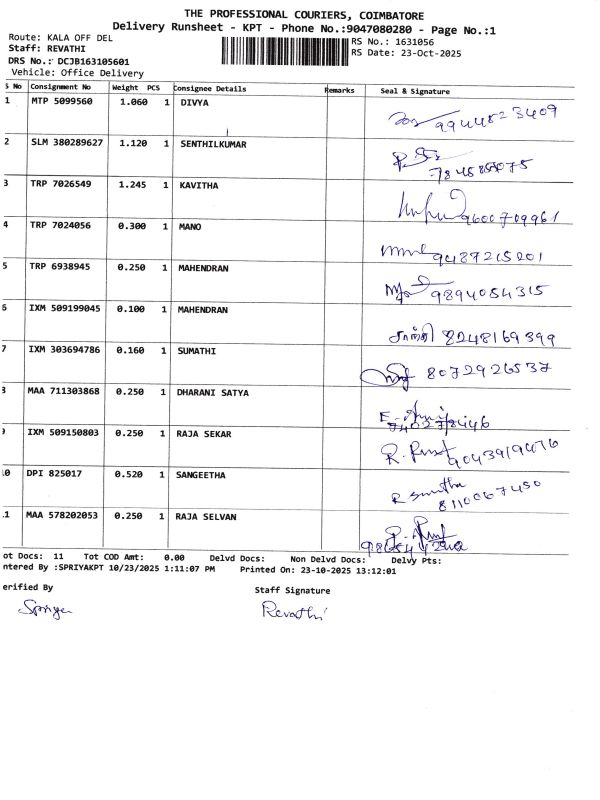 THE PROFESSIONAL COURIERS, COIMBATORE
Delivery Runsheet - KPT - Phone No.:9047080280 - Page No.:1
Route: KALA OFF DEL
RS No.: 1631056
Staff: REVATHI
RS Date: 23-Oct-2025
DRS No.: DCJB163105601
Vehicle: Office Delivery
S No Consignment No Weight PCS Consignee Details Remarks Seal & Signature
1 MTP 5099560 1.060 1 DIVYA 9944823409
2 SLM 380289627 1.120 1 SENTHILKUMAR
3 TRP 7026549 1.245 1 KAVITHA 9600709961
4 TRP 7024056 0.300 1 MANO 9487215201
5 TRP 6938945 0.250 1 MAHENDRAN 9894054315
6 IXM 509199045 0.100 1 MAHENDRAN சாந்தி 8248169399
7 IXM 303694786 0.160 1 SUMATHI 8072926537
8 MAA 711303868 0.250 1 DHARANI SATYA
9 IXM 509150803 0.250 1 RAJA SEKAR 9043919476
10 DPI 825017 0.520 1 SANGEETHA 8110067450
11 MAA 578202053 0.250 1 RAJA SELVAN
ot Docs: 11 Tot COD Amt: 0.00 Delvd Docs: Non Delvd Docs: Delvy Pts:
ntered By :SPRIYAKPT 10/23/2025 1:11:07 PM Printed On: 23-10-2025 13:12:01
erified By Staff Signature
Spriya Revathi